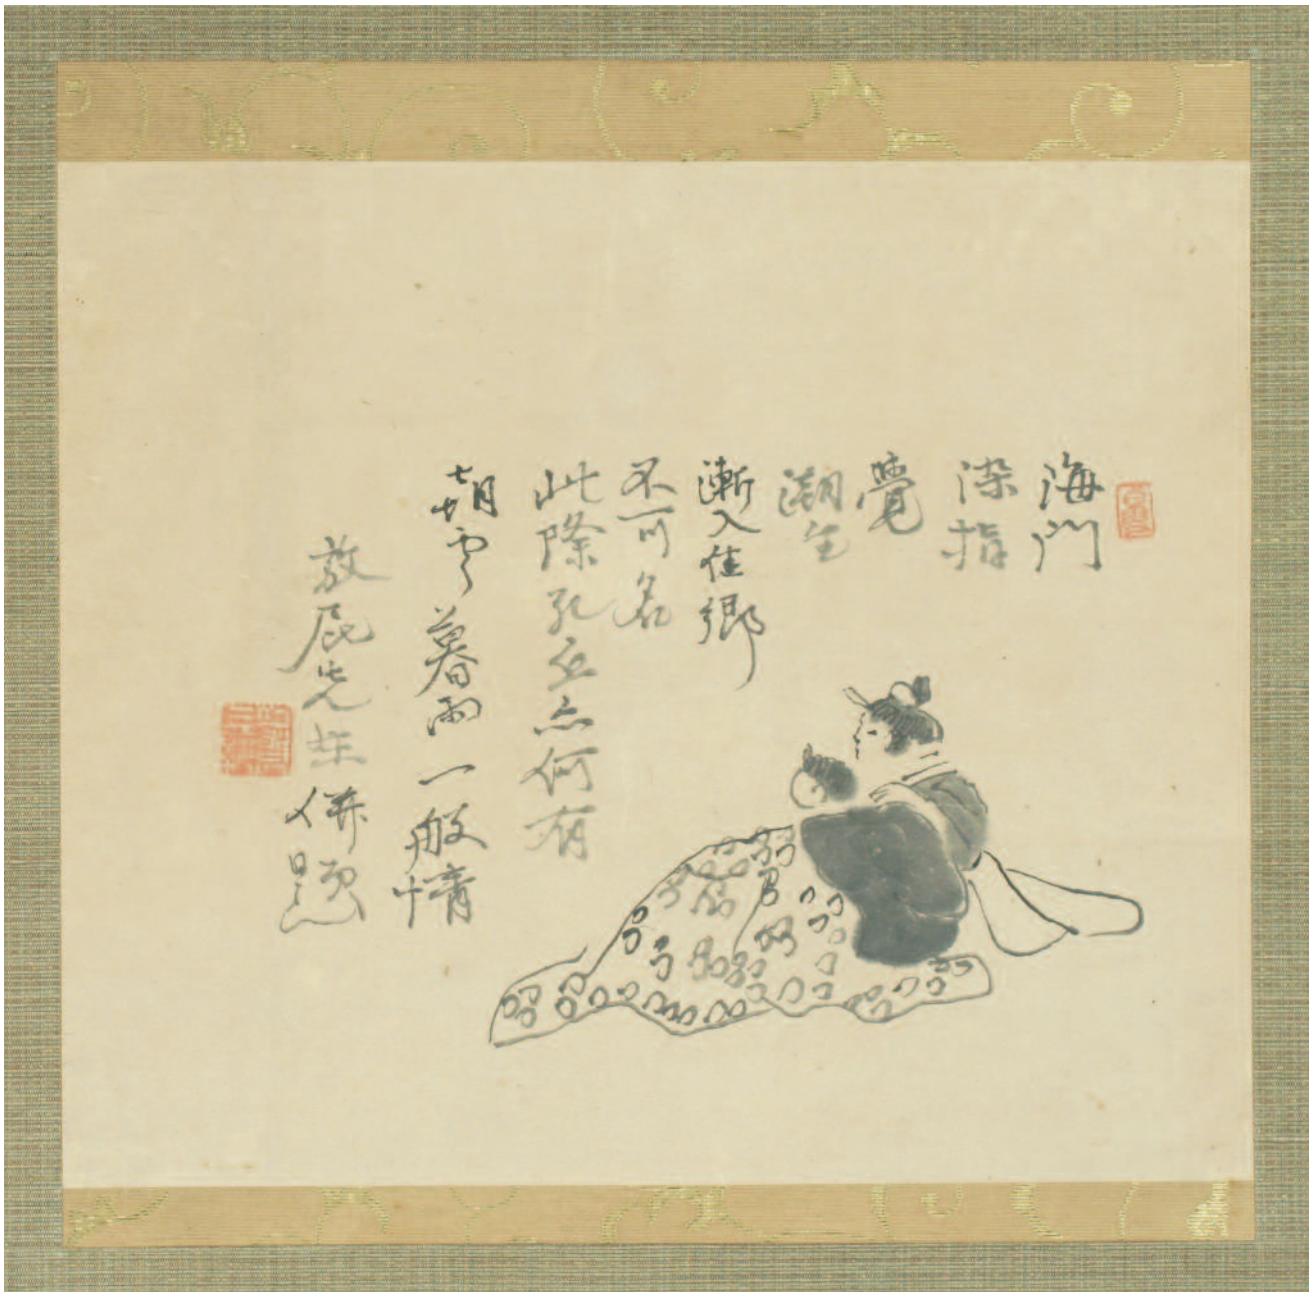 海門
染指
覺
潮生
漸入佳鄉
不可名
此際孔丘亦何有
朝雲暮雨一般情
放屁先生併題